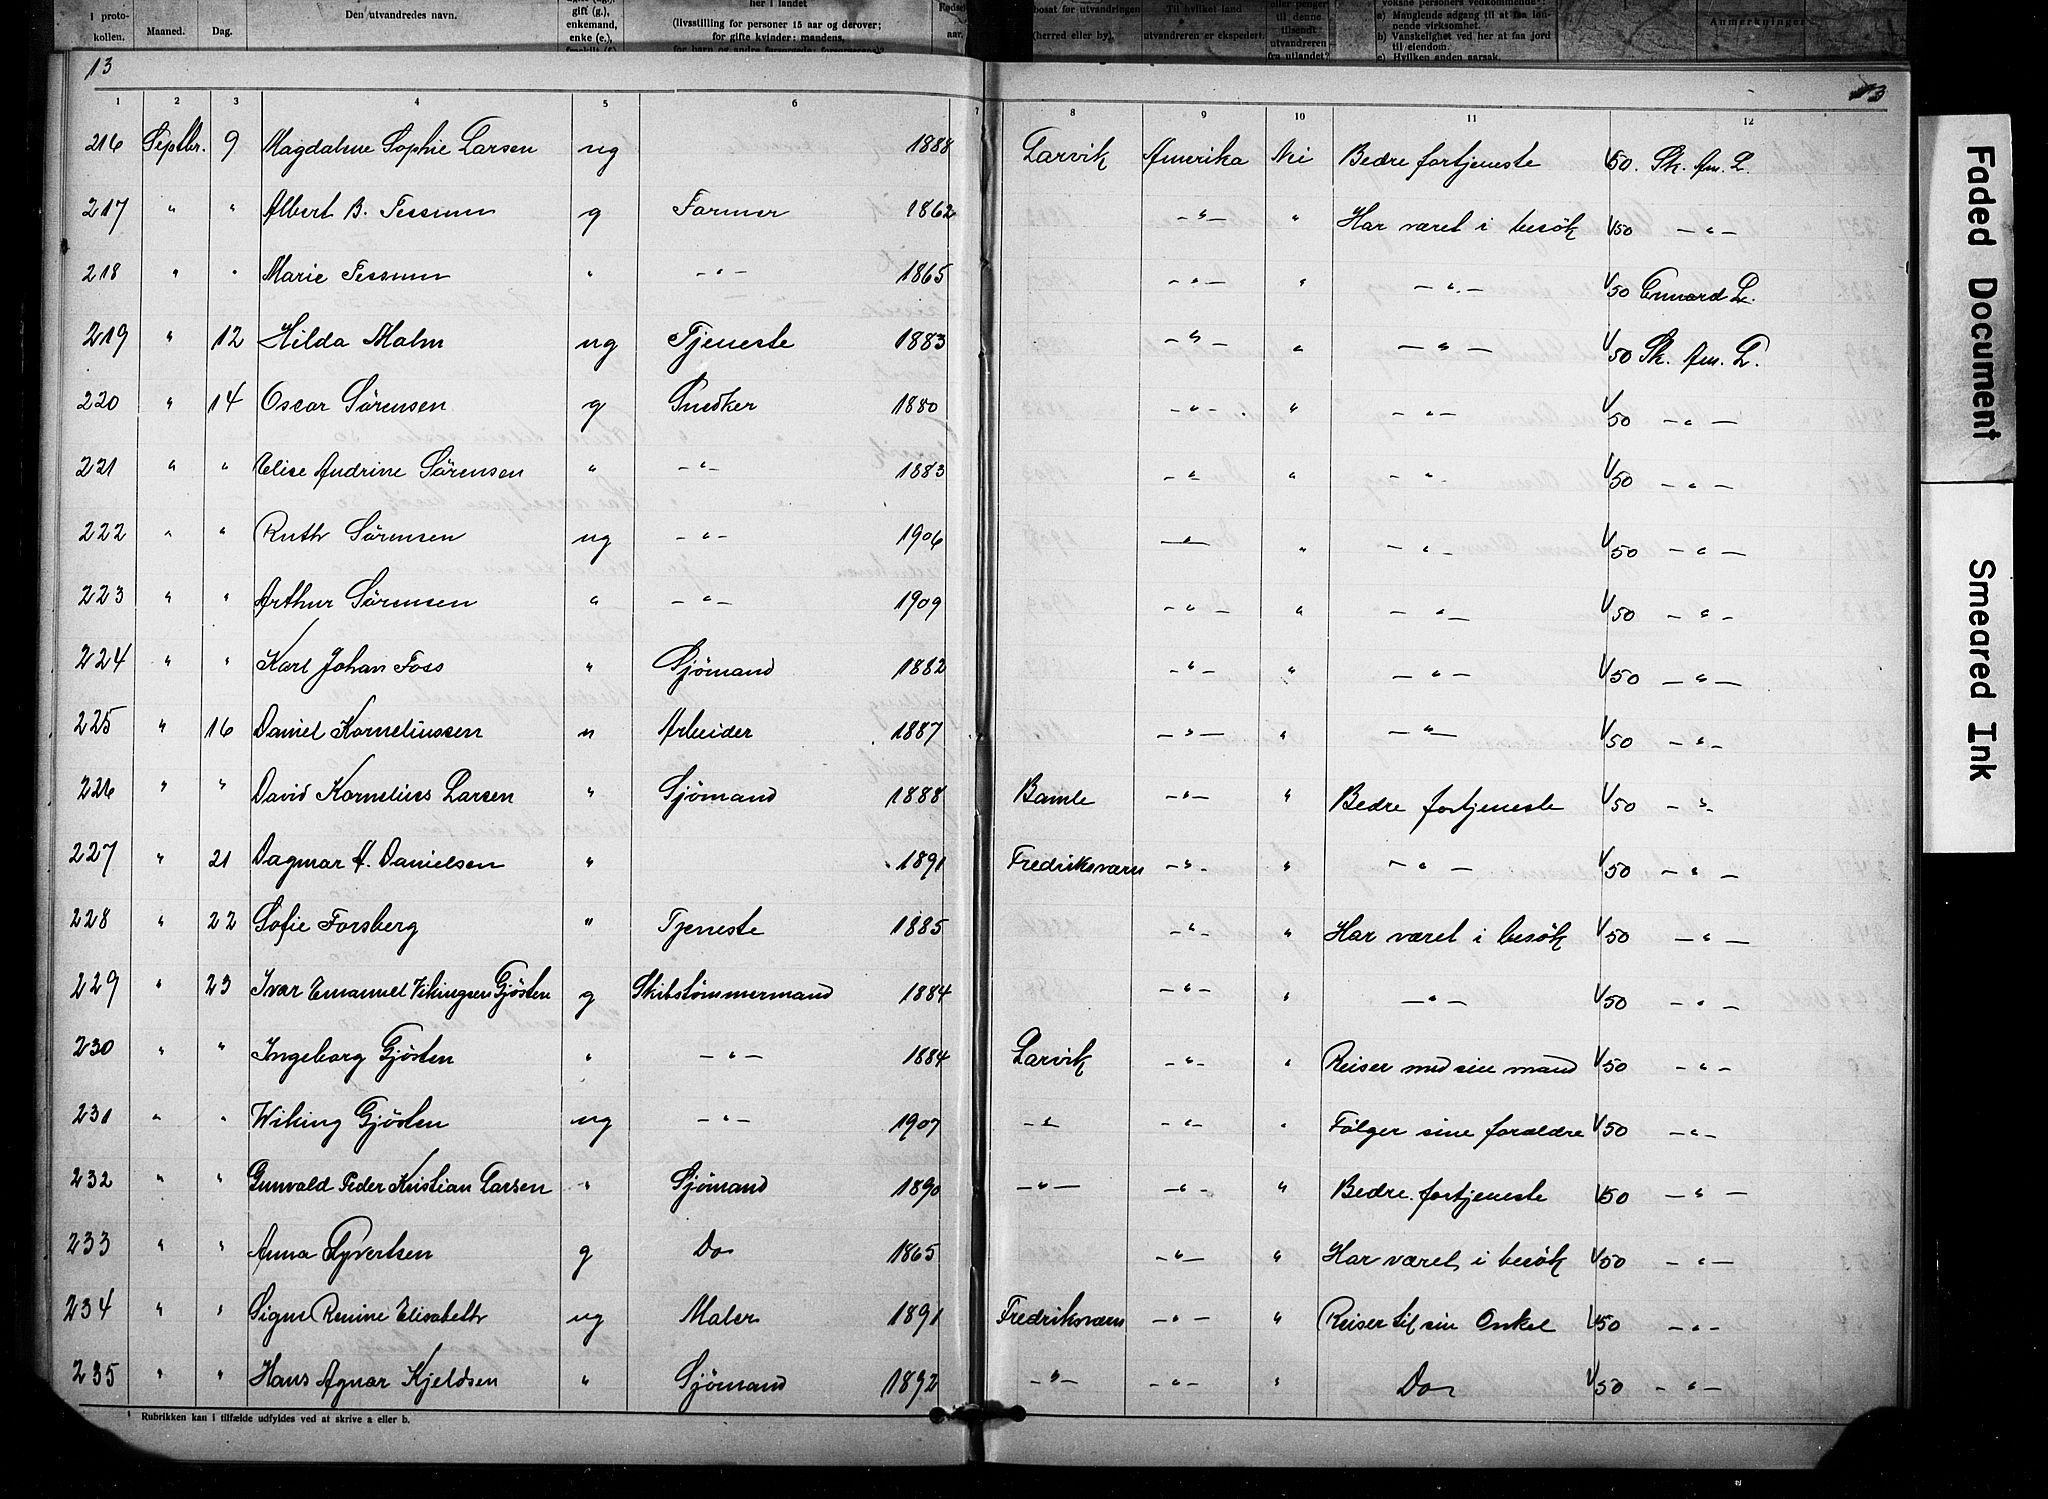 i proto-
kollen. Maaned. Dag. Den utvandredes navn. gift (g.), enkemand, enke (e.), her i landet (livsstilling for personer 15 aar og derover; for gifte kvinder: mandens, aar.
bosat før utvandringen (herred eller by). Til hvilket land utvandreren er ekspedert. eller penger til denne tilsendt utvandreren fra utlandet? voksne personers vedkommende: a) Manglende adgang til at faa løn-nende virksomhet. b) Vanskelighet ved her at faa jord til eiendom. c) Hvilken anden aarsak. Anmerkninger
13 13
1 2 3 4 5 6 7 8 9 10 11 12
216 Septbr. 9 Magdalene Sophie Larsen ug 1888 Larvik Amerika Nei Bedre fortjeneste 1/50. Sk. Am. L.
217 " " Albert B. Tessum g Farmer 1862 -"- " Har været i besök 1/50 -"-
218 " " Marie Tessum " -"- 1865 -"- " -"- 1/50 Cunard L.
219 " 12 Hilda Malm ug Tjeneste 1883 -"- " -"- 1/50 Sk. Am. L.
220 " 14 Oscar Sörensen g Snedker 1880 -"- " -"- 1/50 -"-
221 " " Elise Andrine Sörensen " -"- 1883 -"- " -"- 1/50 -"-
222 " " Ruth Sörensen ug -"- 1906 -"- " -"- 1/50 -"-
223 " " Arthur Sörensen " -"- 1909 -"- " -"- 1/50 -"-
224 " " Karl Johan Foss " Sjömand 1882 -"- " -"- 1/50 -"-
225 " 16 Daniel Korneliussen " Arbeider 1887 -"- " -"- 1/50 -"-
226 " " David Kornelius Larsen " Sjömand 1888 Bamle -"- " Bedre fortjeneste 1/50 -"-
227 " 21 Dagmar H. Danielsen " 1891 Fredriksværn -"- " -"- 1/50 -"-
228 " 22 Sofie Forsberg " Tjeneste 1885 -"- " Har været i besök 1/50 -"-
229 " 23 Ivar Emanuel Vikingsen Gjösten g Skibstömmermand 1884 -"- " -"- 1/50 -"-
230 " " Ingeborg Gjösten " -"- 1884 Larvik -"- " Reiser med sin mand 1/50 -"-
231 " " Wiking Gjösten ug -"- 1907 -"- -"- " Fölger sine forældre 1/50 -"-
232 " " Gunvald Peder Kristian Larsen " Sjömand 1890 -"- -"- " Bedre fortjeneste 1/50 -"-
233 " " Anna Syvertsen g Do 1865 -"- " Har været i besök 1/50 -"-
234 " " Signe Elisabeth ug Maler 1891 Fredriksværn -"- " Reiser til sin Onkel 1/50 -"-
235 " " Hans Agnar Kjeldsen " Sjömand 1892 -"- -"- " Do 1/50 -"-
¹ Rubrikken kan i tilfælde udfyldes ved at skrive a eller b.
Faded Document
Smeared Ink